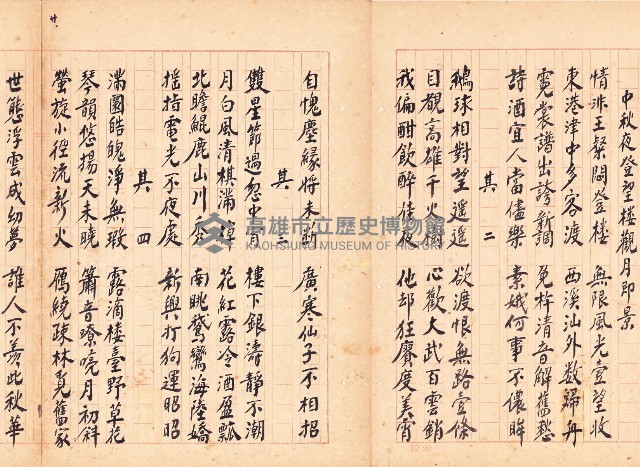 中秋夜登望楼觀月即景
情非王粲悶登楼 無限風光壹望收
東港津中多客渡 西溪汕外数歸舟
霓裳譜出誇新調 兎杵清音解舊愁
詩酒宜人當儘樂 素娥何事不儂眸
其二
鵝球相對望遥遥 欲渡恨無路壹條
目覩高雄千火樹 心歡大武百雲銷
我偏酣飲醉佳夜 他却狂賡度美宵
自愧塵緣將未断 廣寒仙子不相招
其三
雙星節過忽中宵 樓下銀濤靜不潮
月白風清棋滿 花紅露冷酒盈瓢
北瞻鯤鹿山川 南眺鵞鸞海陸嬌
摇持電光不夜處 新興打狗運昭昭
其四
滿園皓魄淨無瑕 露滴楼臺野草花
琴韻悠揚天未曉 簫音嘹喨月初斜
螢旋小徑流新火 雁繞疎林覓舊家
世態浮雲成幻夢 誰人不羨此秋華
廿
高雄市立歷史博物館
KAOHSIUNG MUSEUM OF HISTORY